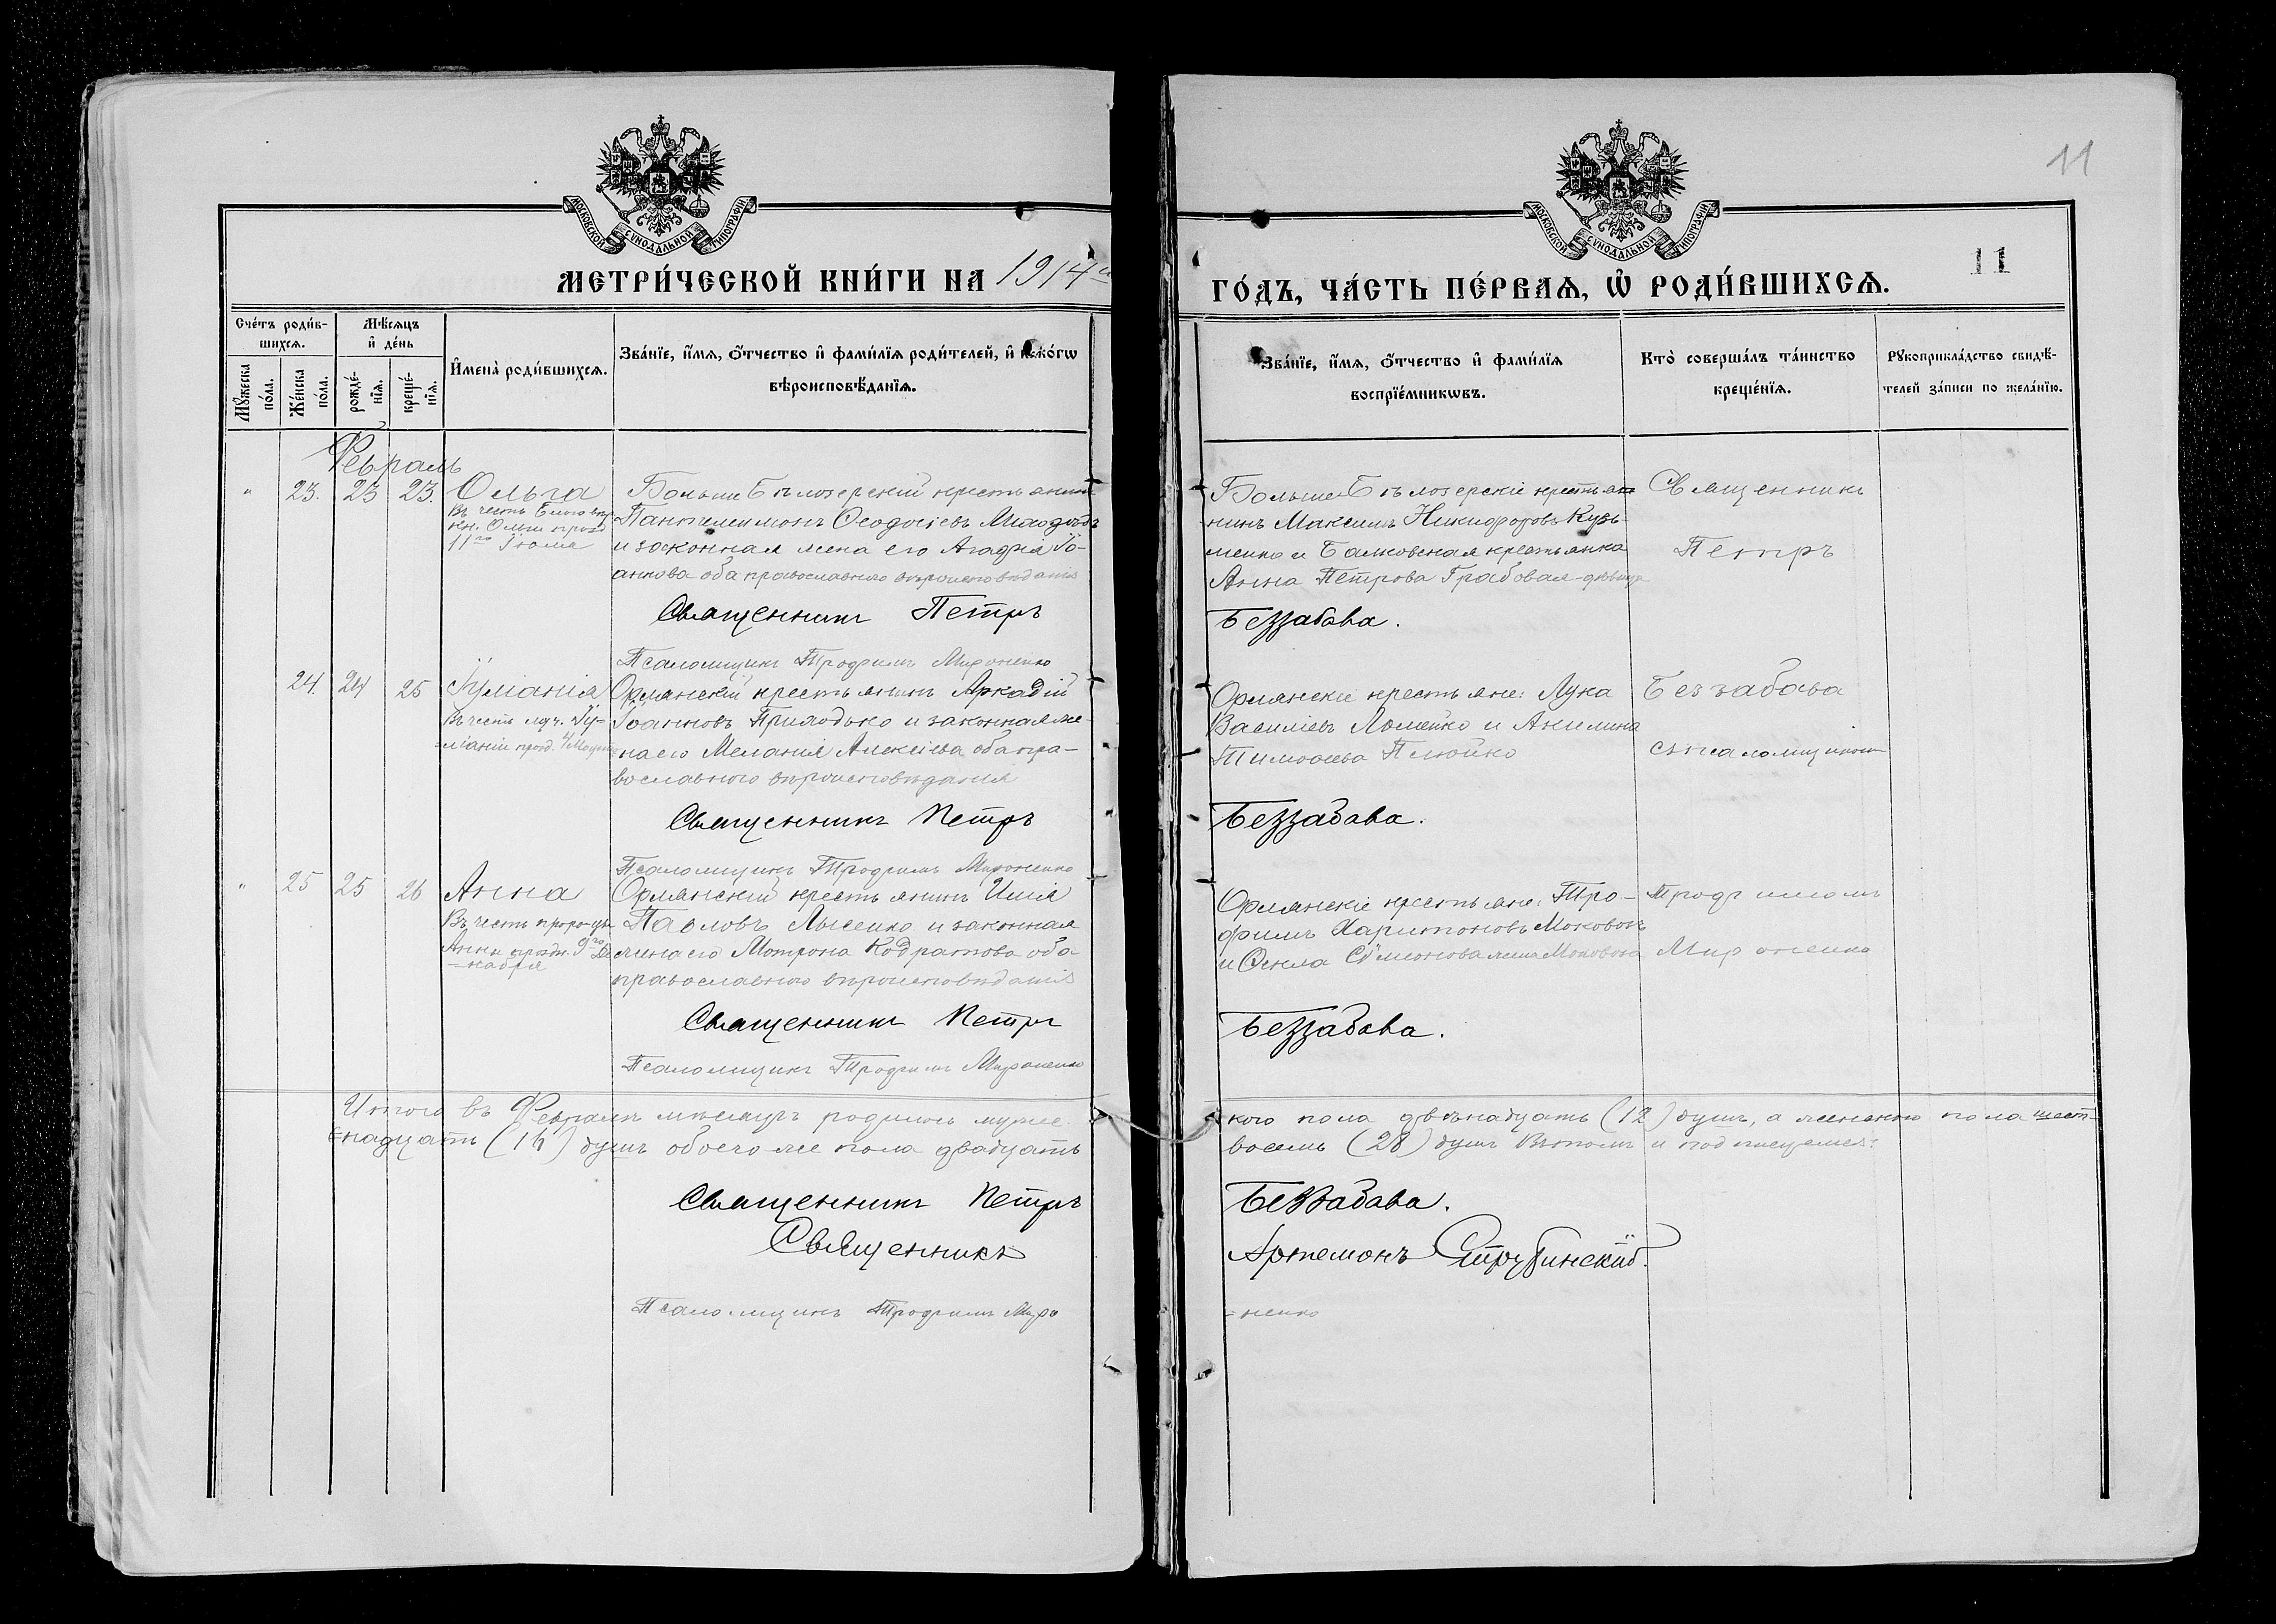 11
МОСКОВСКОЙ СУНОДАЛЬНОЙ ТИПОГРАФІИ
МОСКОВСКОЙ СУНОДАЛЬНОЙ ТИПОГРАФІИ
11
МЕТРИ́ЧЕСКОЙ КНИ́ГИ НА 1914
ГО́ДЪ, ЧА́СТЬ ПЕ́РВАѦ, Ѡ҆ РОДИ́ВШИХСѦ.
Сче́тъ роди́в-
шихсѧ.
Мѣ́сѧцъ
и҆ де́нь
Мꙋ́жеска
по́ла.
Же́нска
по́ла.
рожде́-
нїѧ.
креще́-
нїѧ.
И҆мена̀ роди́вшихсѧ.
Зва́нїе, и҆́мѧ, ѻ҆́тчество и҆ фами́лїѧ роди́телей, и҆ како́гѡ
вѣроисповѣ́данїѧ.
Зва́нїе, и҆́мѧ, ѻ҆́тчество и҆ фами́лїѧ
воспрїе́мникѡвъ.
Кто̀ соверша́лъ та́инство
креще́нїѧ.
Рꙋкоприкла́дство свидѣ́-
телей за́писи по жела́нїю.
Февраль
" 23. 23 23. Ольга
Въ честь
кн. Ольги празд
11го Іюля
Больше Бѣлозерскій крестьянинъ
Пантелеимонъ Ѳеодосіевъ
и законная жена его Агафія Іо-
аннова оба православнаго вѣроисповѣданія
Священникъ Петръ
Псаломщикъ Трофимъ Мироненко
Больше-Бѣлозерскіе крестья
нинъ Максимъ Никифоровъ Кузь-
менко и Балковская крестьянка
Анна Петрова Грабовая-дѣвица
Беззабава.
Священникъ
Петръ
24. 24 25 Іуліанія
Въ честь мч. Іу-
ліаніи празд. 4 Марта
Орлянскій крестьянинъ Аркадій
Іоанновъ Приходько и законная же-
на его Меланія Алексіева оба пра-
вославнаго вѣроисповѣданія
Священникъ Петръ
Псаломщикъ Трофимъ Мироненко
Орлянскіе крестьяне: Лука
Василіевъ Ломейко и Акилина
Тимоѳеева Плюйко
Беззабава.
Беззабава
съ псаломщикомъ
" 25 25 26 Анна
Въ честь пророчицы
Анны празд. 9го Де
=кабря
Орлянскій крестьянинъ Илія
Павловъ Лысенко и законная
жена его Мотрона Кодратова оба
православнаго вѣроисповѣданія
Священникъ Петръ
Псаломщикъ Трофимъ Мироненко
Орлянскіе крестьяне: Тро-
фимъ Харитоновъ Моковозъ
и Ѳекла Сѵмеонова жена Моковоза
Беззабава.
Трофимомъ
Мироненко
Итого въ Февралѣ мѣсяцѣ родилось мужес
кого пола двѣнадцать (12) душъ, а женскаго пола шест-
=надцать (16) душъ обоего же пола двадцать
восемь (28) душъ въ томъ и подписуемся:
Священникъ Петръ
Беззабава.
Священникъ
Артемонъ Струбинскій.
Псаломщикъ Трофимъ Миро
=ненко